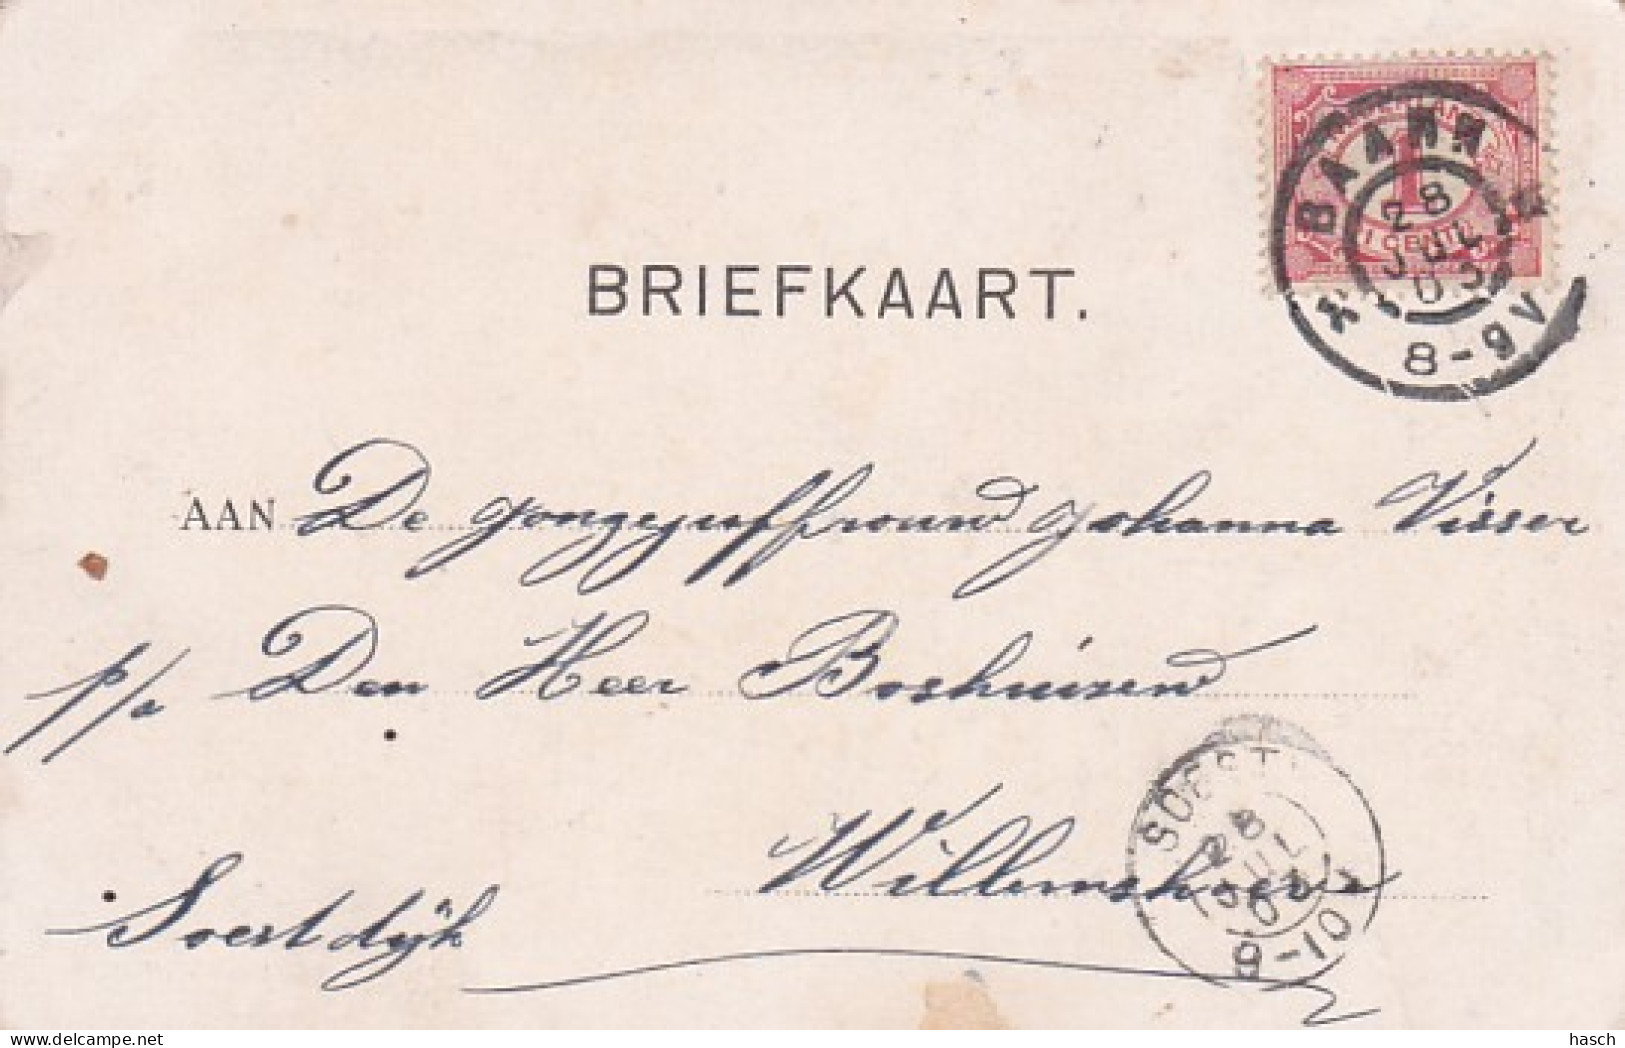 BAARN
28
JUL
03
8-9V
1
1 CENT
BRIEFKAART.
AAN De Jongejuffrouw Johanna Visser
p/a Den Heer Boshuizen
Willemshoeve
Soestdijk
SOEST
28
JUL
03
9-10V
delcampe.net
hasch